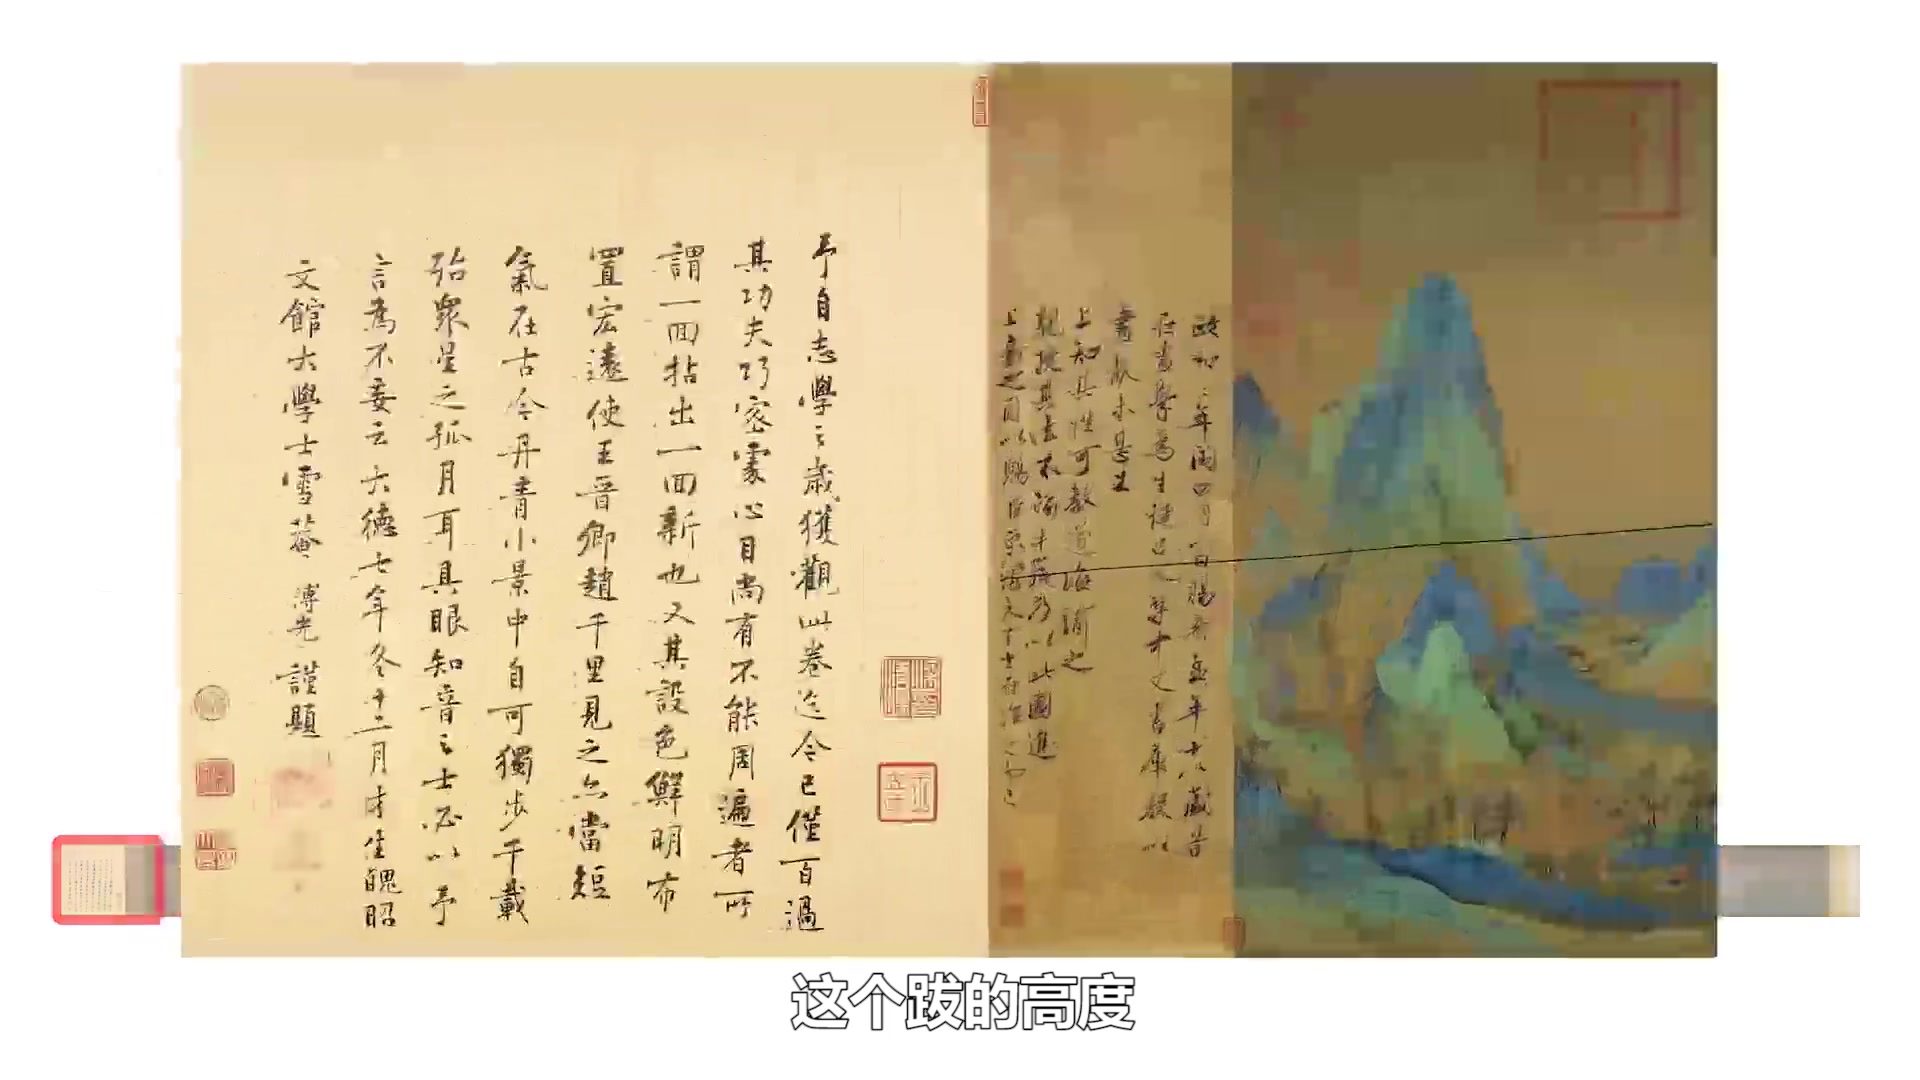 政和三年閏四月一日賜希孟年十八歲昔
在畫學為生徒召入禁中文書庫數以
畫獻未甚工
上知其性可教遂誨諭之
親授其法不踰半歲乃以此圖進
上嘉之因以賜臣京謂天下士在作之而已
予自志學之歲獲觀此卷迄今已僅百過
其功夫巧密處心目尚有不能周遍者所
謂一回拈出一回新也又其設色鮮明布
置宏遠使王晉卿趙千里見之亦當短
氣在古今丹青小景中自可獨步千載
殆眾星之孤月耳具眼知音之士必以予
言為不妄云大德七年冬十二月才生魄昭
文館大學士雪菴溥光謹題
这个跋的高度